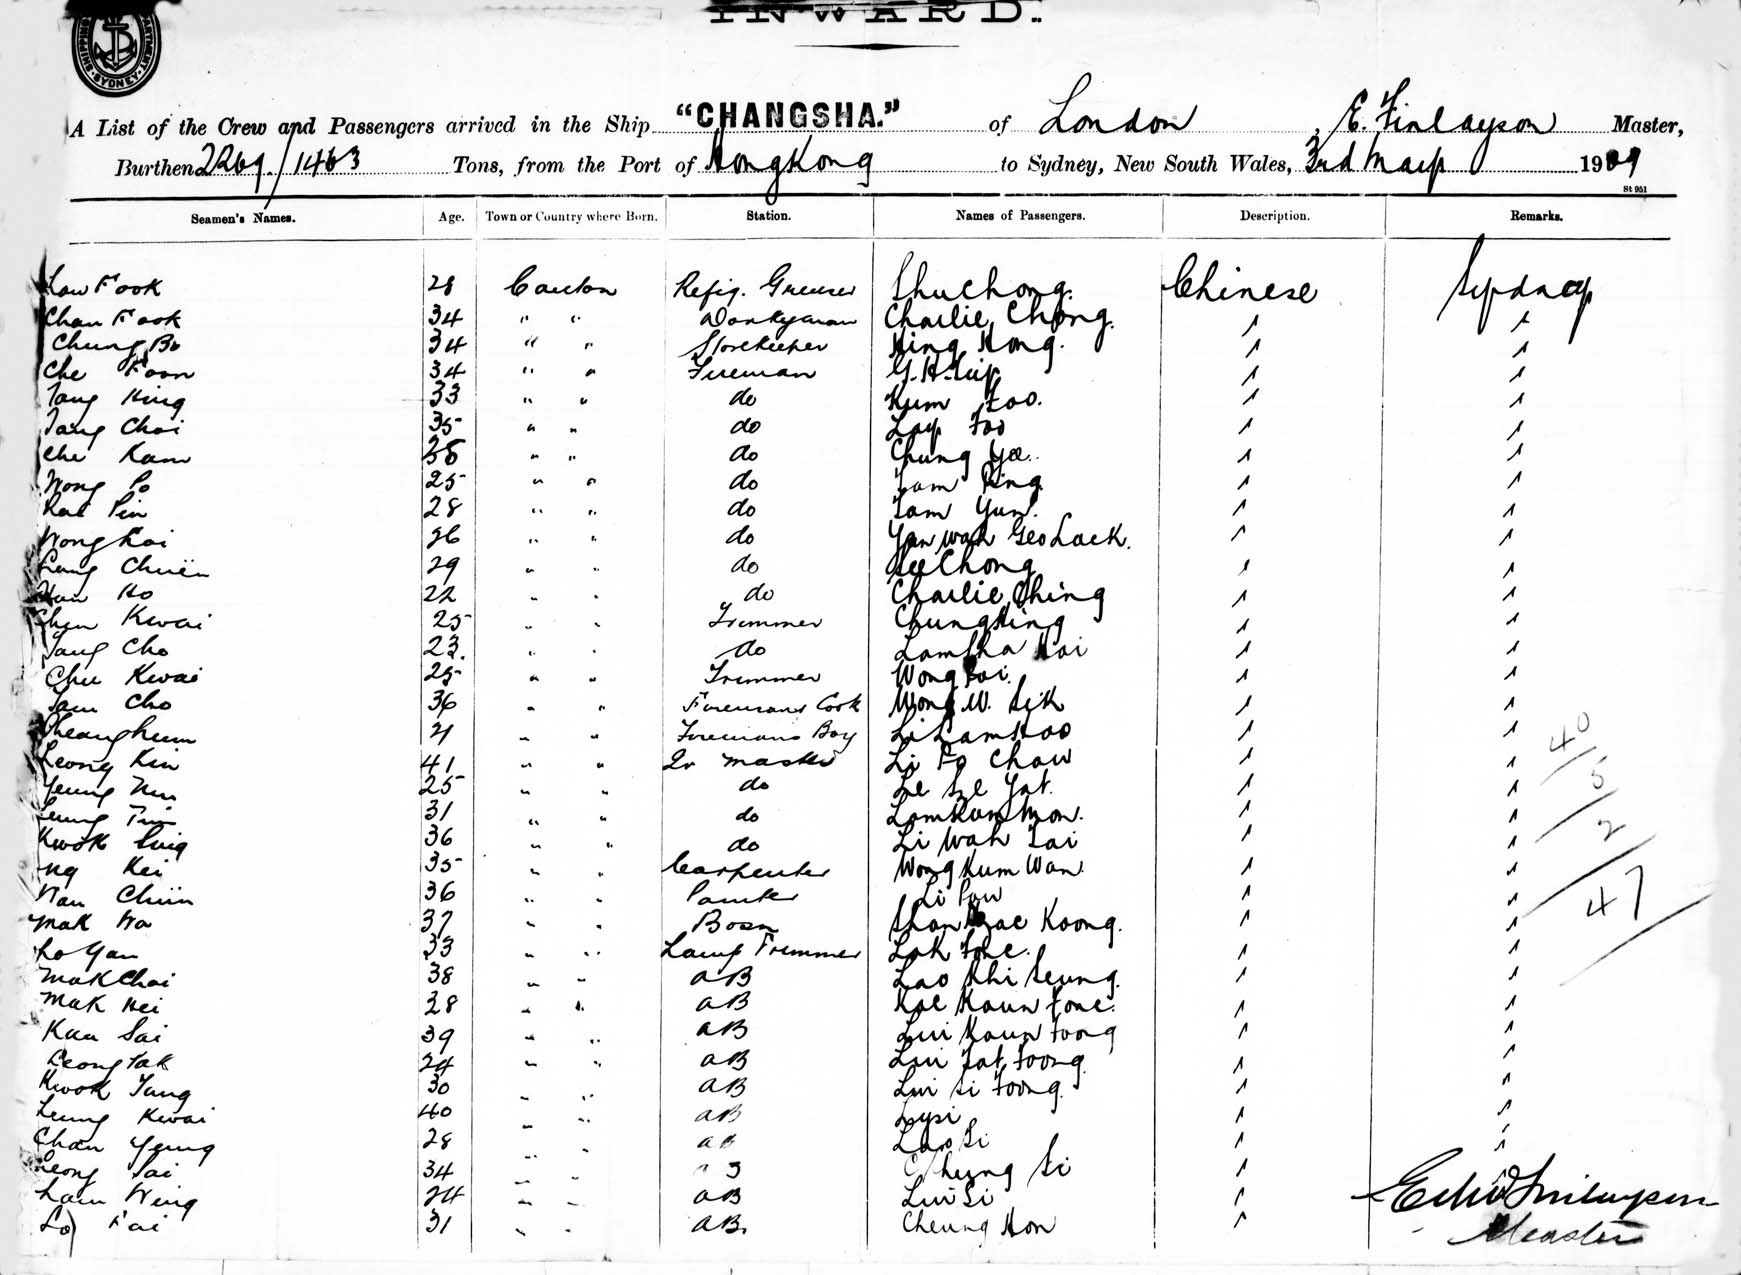 INWARD.
SHIPPING DEPARTMENT SYDNEY
A List of the Crew and Passengers arrived in the Ship "CHANGSHA." of London, E. Finlayson Master,
Burthen 2269/1463 Tons, from the Port of HongKong to Sydney, New South Wales, 3rd May 1909
St 951
Seamen's Names. Age. Town or Country where Born. Station. Names of Passengers. Description. Remarks.
Low Fook 28 Canton Refig. Greaser Shuchong. Chinese Sydney
Chan Fook 34 " " Donkeyman Charlie Chong. " "
Chung Bo 34 " " Storekeeper Hing Kong. " "
Che Foon 34 " " Fireman " "
Tang King 33 " " do Kum Foo. " "
Tang Choi 35 " " do Lay Foo " "
Che Kam " " do Chung Yee. " "
Wong Po 25 " " do Tam Ping. " "
28 " " do Tam Yun. " "
Wong Kai 26 " " do Yan Wah Geo Lack. " "
Leung Chuen 29 " " do Lee Chong " "
Ho 22 " " do Charlie Ching " "
Chen Kwai 25 " " Trimmer Chung King " "
Tang Cho 23. " " do " "
Chu Kwai 25 " " Trimmer Wong Pai. " "
Tam Cho 36 " " Firemans Cook Wong W. Sik " "
21 " " Firemans Boy Li Lam Hoo " "
Leong Kin 41 " " Qr Master Li Fo Chow " "
Yeung 25 " " do Le Sze Yat. " "
Leung Tim 31 " " do Lam Kum Mon. " "
Kwok Sing 36 " " do Li Wah Tai " "
Ng Kei 35 " " Carpenter Wong Kum Wan. " "
Chun 36 " " Painter Li Pow " "
Mak Wo 37 " " Bosn Koong. " "
Lo Yau 33 " " Lamp Trimmer Lok " "
Mak Choi 38 " " AB Lao Khi Seung. " "
Mak Hei 28 " " AB Koe Kaun Fone. " "
Kau Sai 39 " " AB Lui Kaun Foong " "
Leong Tak 24 " " AB Lui Tat Foong " "
Kwok Tung 30 " " AB Lui Si Foong. " "
Leung Kwai 40 " " AB Lysi " "
Chan Yeung 28 " " AB Lao Si " "
Leong Tai 34 " " Cheung Si " "
Lam Wing 24 " " AB Lui Si "
Lo Fai 31 " " AB. Cheung Hon "
40
5
2
47
Finlayson
Master